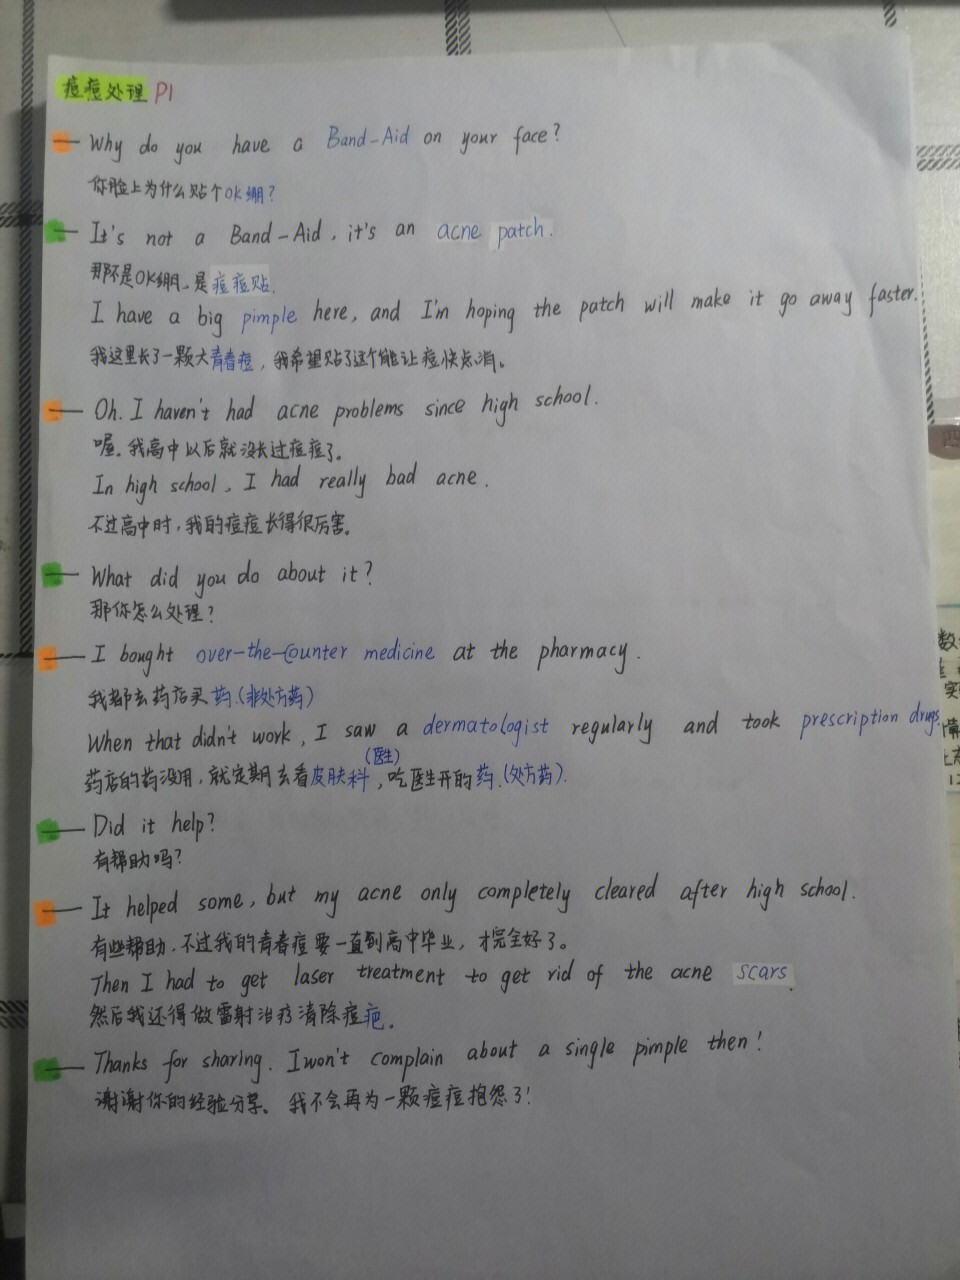 痘痘处理 P1
Why do you have a Band-Aid on your face?
你脸上为什么贴个OK绷？
It's not a Band-Aid, it's an acne patch.
那不是OK绷、是痘痘贴.
I have a big pimple here, and I'm hoping the patch will make it go away faster.
我这里长了一颗大青春痘，我希望贴了这个能让痘快点消。
Oh. I haven't had acne problems since high school.
喔. 我高中以后就没长过痘痘了。
In high school, I had really bad acne.
不过高中时，我的痘痘长得很厉害。
What did you do about it?
那你怎么处理？
I bought over-the-Counter medicine at the pharmacy.
我都去药店买药.(非处方药)
When that didn't work, I saw a dermatologist regularly and took prescription drugs.
(医生)
药店的药没用，就定期去看皮肤科，吃医生开的药.(处方药).
Did it help?
有帮助吗？
It helped some, but my acne only completely cleared after high school.
有些帮助.不过我的青春痘要一直到高中毕业，才完全好了。
Then I had to get laser treatment to get rid of the acne scars.
然后我还得做雷射治疗清除痘疤.
Thanks for sharing. I won't complain about a single pimple then!
谢谢你的经验分享。我不会再为一颗痘痘抱怨了！
四
数
实
情
12